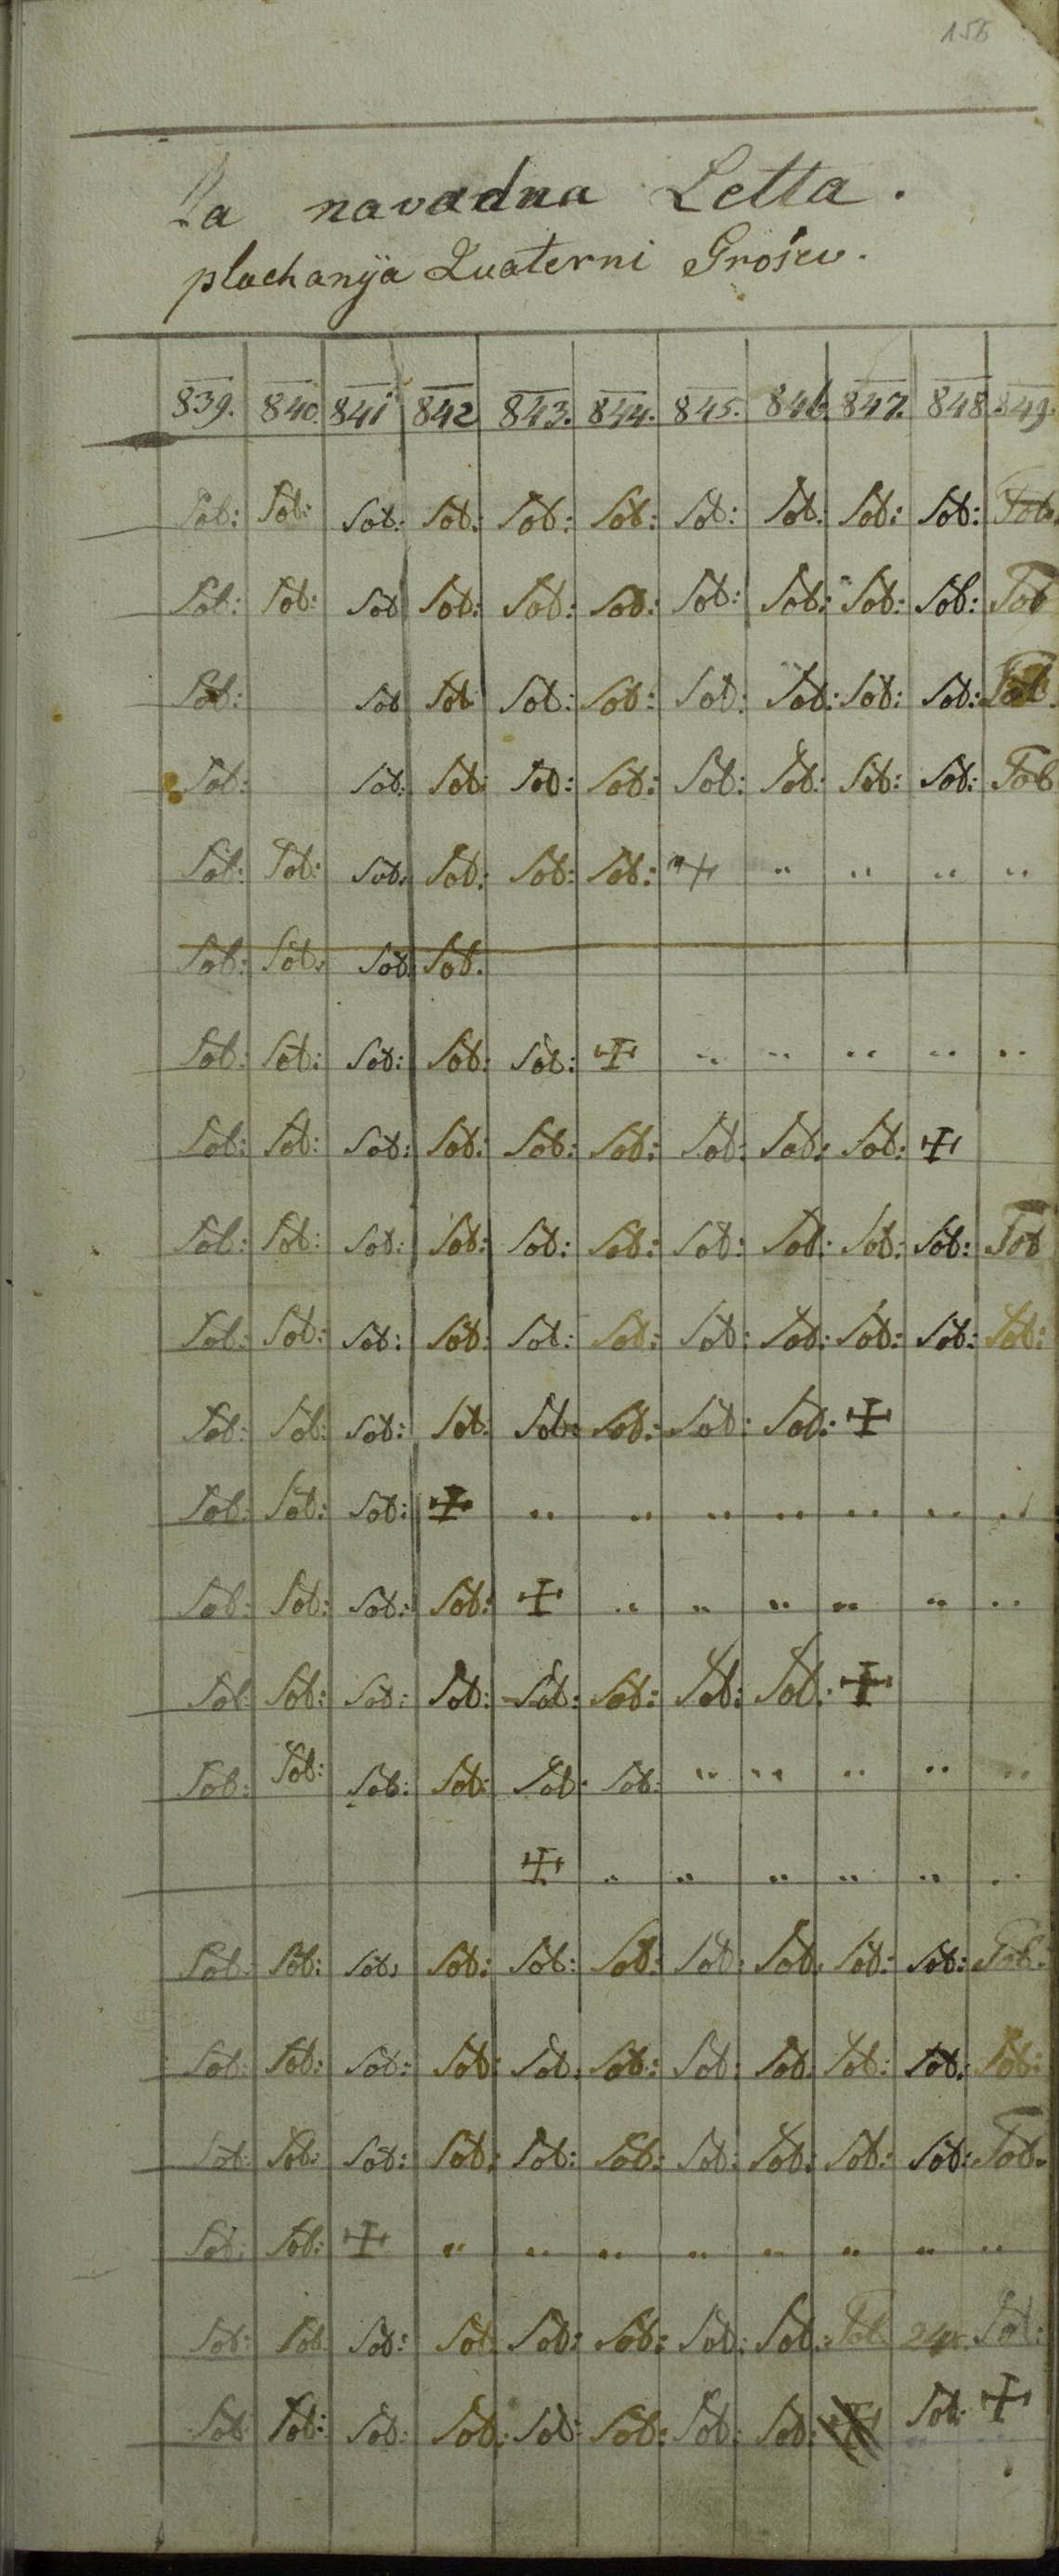 155
Za navadna Letta.
plachanÿa Quaterni Grošev.
839. 840. 841 842 843. 844. 845. 846. 847. 848 849.
Sol: Sol: Sol: Sol: Sol: Sol: Sol: Sol: Sol: Sol: Sol:
Sol: Sol: Sol Sol: Sol: Sol: Sol: Sol: Sol: Sol: Sol
Sol: Sol Sol: Sol: Sol: Sol: Sol: Sol: Sol: Sol.
Sol: Sol: Sol: Sol: Sol: Sol: Sol: Sol: Sol: Sol
Sol: Sol: Sol: Sol: Sol: Sol: ☩ " " " "
Sol: Sol: Sol: Sol.
Sol: Sol: Sol: Sol: Sol: ☩ " " " " "
Sol: Sol: Sol: Sol: Sol: Sol: Sol: Sol: Sol: ☩
Sol: Sol: Sol: Sol: Sol: Sol: Sol: Sol: Sol: Sol: Sol
Sol: Sol: Sol: Sol: Sol: Sol: Sol: Sol: Sol: Sol: Sol:
Sol: Sol: Sol: Sol: Sol: Sol: Sol: Sol: ☩
Sol: Sol: Sol: ☩ " " " " " " "
Sol: Sol: Sol: Sol: ☩ " " " " " "
Sol: Sol: Sol: Sol: Sol: Sol: Sol: Sol: ☩
Sol: Sol: Sol: Sol: Sol: Sol: " " " " "
☩ " " " " " "
Sol: Sol: Sol: Sol: Sol: Sol: Sol: Sol: Sol: Sol: Sol:
Sol: Sol: Sol: Sol: Sol: Sol: Sol: Sol: Sol: Sol: Sol:
Sol: Sol: Sol: Sol: Sol: Sol: Sol: Sol: Sol: Sol: Sol.
Sol: Sol: ☩ " " " " " " " "
Sol: Sol: Sol: Sol: Sol: Sol: Sol: Sol: Sol: Sol:
Sol: Sol: Sol: Sol: Sol: Sol: Sol: Sol: Sol: ☩